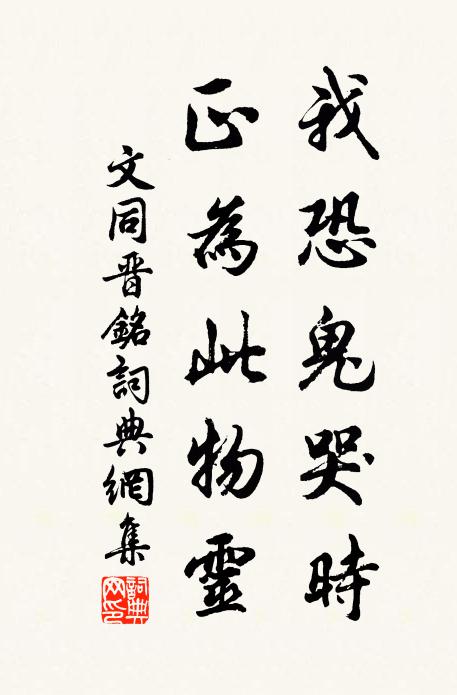 我恐鬼哭時
正為此物靈
文同晉銘詞典網集
詞典網印